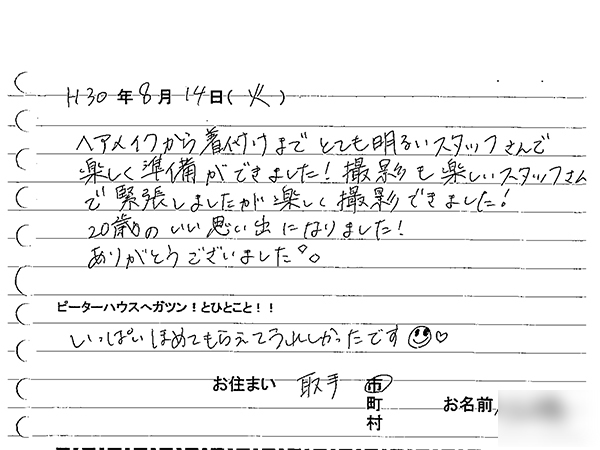 H30年8月14日(火)
ヘアメイクから着付けまでとても明るいスタッフさんで
楽しく準備ができました!撮影も楽しいスタッフさん
で緊張しましたが楽しく撮影できました!
20歳のいい思い出になりました!
ありがとうございました。
ピーターハウスへガツン!とひとこと!!
いっぱいほめてもらえてうれしかったです
お住まい 取手 市
町
村
お名前